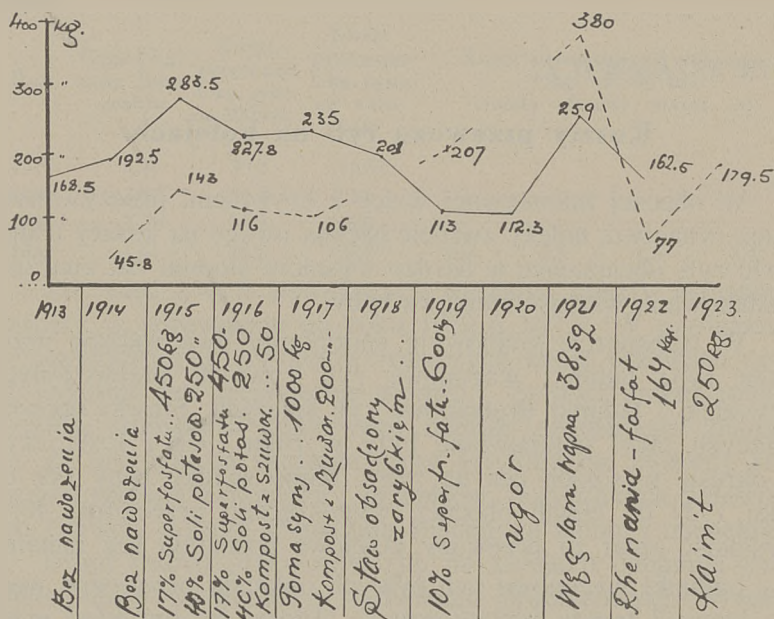 400 kg.
300 "
200 "
100 "
0
168.5
192.5
283.5
227.8
235
201
113
112.3
259
162.5
45.8
143
116
106
207
380
77
179.5
1913
1914
1915
1916
1917
1918
1919
1920
1921
1922
1923.
Bez nawozenia
Bez nawozenia
17% Superfosfatu.. 450 kg
40% Soli potasow. 250 "
17% Superfosfatu 450.
40% Soli potas. 250
Kompostz .. 50
Tomasyny .. 1000 kg
Kompost z 200
Staw obsadzony
zarybkiem ..
10% fatu.. 600 kg
ugór
wapna 38,5q
Rhenania-fosfat
164 kg.
Kainit 250 kg.